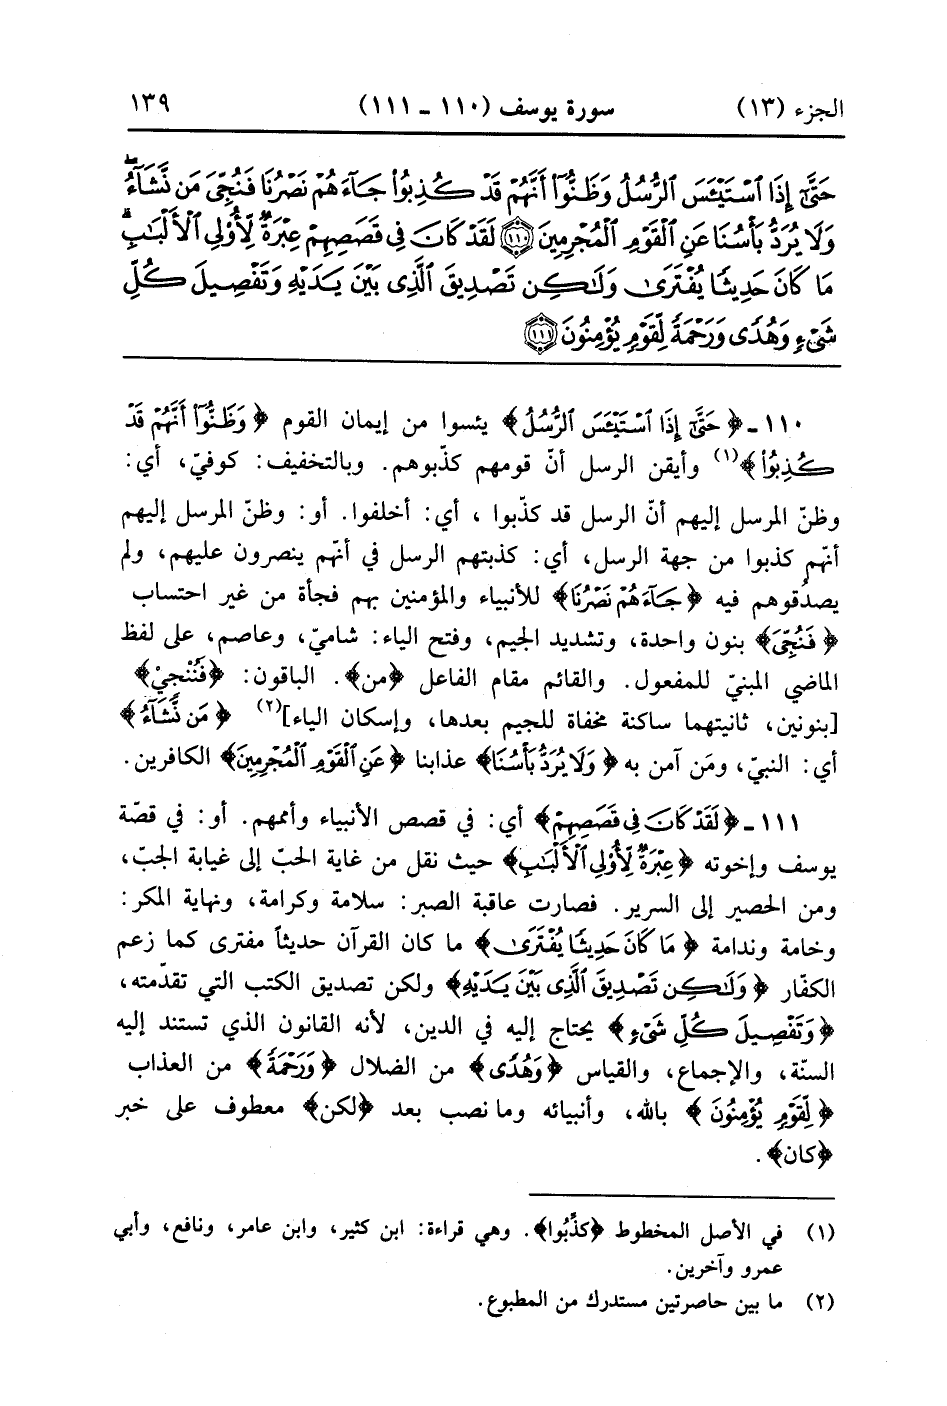 الجزء (١٣) سورة يوسف (١١٠ ـ ١١١) ١٣٩
حَتَّىٰٓ إِذَا ٱسْتَيْـَٔسَ ٱلرُّسُلُ وَظَنُّوٓا۟ أَنَّهُمْ قَدْ كُذِبُوا۟ جَآءَهُمْ نَصْرُنَا فَنُجِّىَ مَن نَّشَآءُ ۖ
وَلَا يُرَدُّ بَأْسُنَا عَنِ ٱلْقَوْمِ ٱلْمُجْرِمِينَ ١١٠ لَقَدْ كَانَ فِى قَصَصِهِمْ عِبْرَةٌ لِّأُو۟لِى ٱلْأَلْبَـٰبِ ۗ
مَا كَانَ حَدِيثًا يُفْتَرَىٰ وَلَـٰكِن تَصْدِيقَ ٱلَّذِى بَيْنَ يَدَيْهِ وَتَفْصِيلَ كُلِّ
شَىْءٍ وَهُدًى وَرَحْمَةً لِّقَوْمٍ يُؤْمِنُونَ ١١١
١١٠ ـ ﴿حَتَّىٰٓ إِذَا ٱسْتَيْـَٔسَ ٱلرُّسُلُ﴾ يئسوا من إيمان القوم ﴿وَظَنُّوٓا۟ أَنَّهُمْ قَدْ
كُذِبُوا۟﴾(١) وأيقن الرسل أنّ قومهم كذّبوهم. وبالتخفيف: كوفيّ، أي:
وظنّ المرسل إليهم أنّ الرسل قد كذّبوا ، أي: أخلفوا. أو: وظنّ المرسل إليهم
أنّهم كذبوا من جهة الرسل، أي: كذبتهم الرسل في أنّهم ينصرون عليهم، ولم
يصدُقوهم فيه ﴿جَآءَهُمْ نَصْرُنَا﴾ للأنبياء والمؤمنين بهم فجأة من غير احتساب
﴿فَنُجِّىَ﴾ بنون واحدة، وتشديد الجيم، وفتح الياء: شاميّ، وعاصم، على لفظ
الماضي المبنيّ للمفعول. والقائم مقام الفاعل ﴿من﴾. الباقون: ﴿فَنُنْجِيْ﴾
[بنونين، ثانيتهما ساكنة مخفاة للجيم بعدها، وإسكان الياء](٢) ﴿مَن نَّشَآءُ﴾
أي: النبيّ، ومَن آمن به ﴿وَلَا يُرَدُّ بَأْسُنَا﴾ عذابنا ﴿عَنِ ٱلْقَوْمِ ٱلْمُجْرِمِينَ﴾ الكافرين.
١١١ ـ ﴿لَقَدْ كَانَ فِى قَصَصِهِمْ﴾ أي: في قصص الأنبياء وأممهم. أو: في قصّة
يوسف وإخوته ﴿عِبْرَةٌ لِّأُو۟لِى ٱلْأَلْبَـٰبِ﴾ حيث نقل من غاية الحبّ إلى غيابة الجبّ،
ومن الحصير إلى السرير. فصارت عاقبة الصبر: سلامة وكرامة، ونهاية المكر:
وخامة وندامة ﴿مَا كَانَ حَدِيثًا يُفْتَرَىٰ﴾ ما كان القرآن حديثاً مفترى كما زعم
الكفّار ﴿وَلَـٰكِن تَصْدِيقَ ٱلَّذِى بَيْنَ يَدَيْهِ﴾ ولكن تصديق الكتب التي تقدّمته،
﴿وَتَفْصِيلَ كُلِّ شَىْءٍ﴾ يحتاج إليه في الدين، لأنه القانون الذي تستند إليه
السنّة، والإجماع، والقياس ﴿وَهُدًى﴾ من الضلال ﴿وَرَحْمَةً﴾ من العذاب
﴿لِّقَوْمٍ يُؤْمِنُونَ﴾ بالله، وأنبيائه وما نصب بعد ﴿لكن﴾ معطوف على خبر
﴿كان﴾.
(١) في الأصل المخطوط ﴿كذِّبُوا﴾. وهي قراءة: ابن كثير، وابن عامر، ونافع، وأبي
عمرو وآخرين.
(٢) ما بين حاصرتين مستدرك من المطبوع.